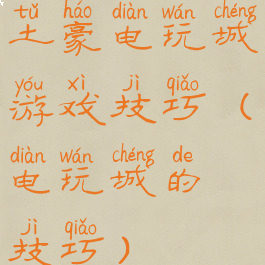 tǔ háo diàn wán chéng
土豪电玩城
yóu xì jì qiǎo
游戏技巧（
diàn wán chéng de
电玩城的
jì qiǎo
技巧）